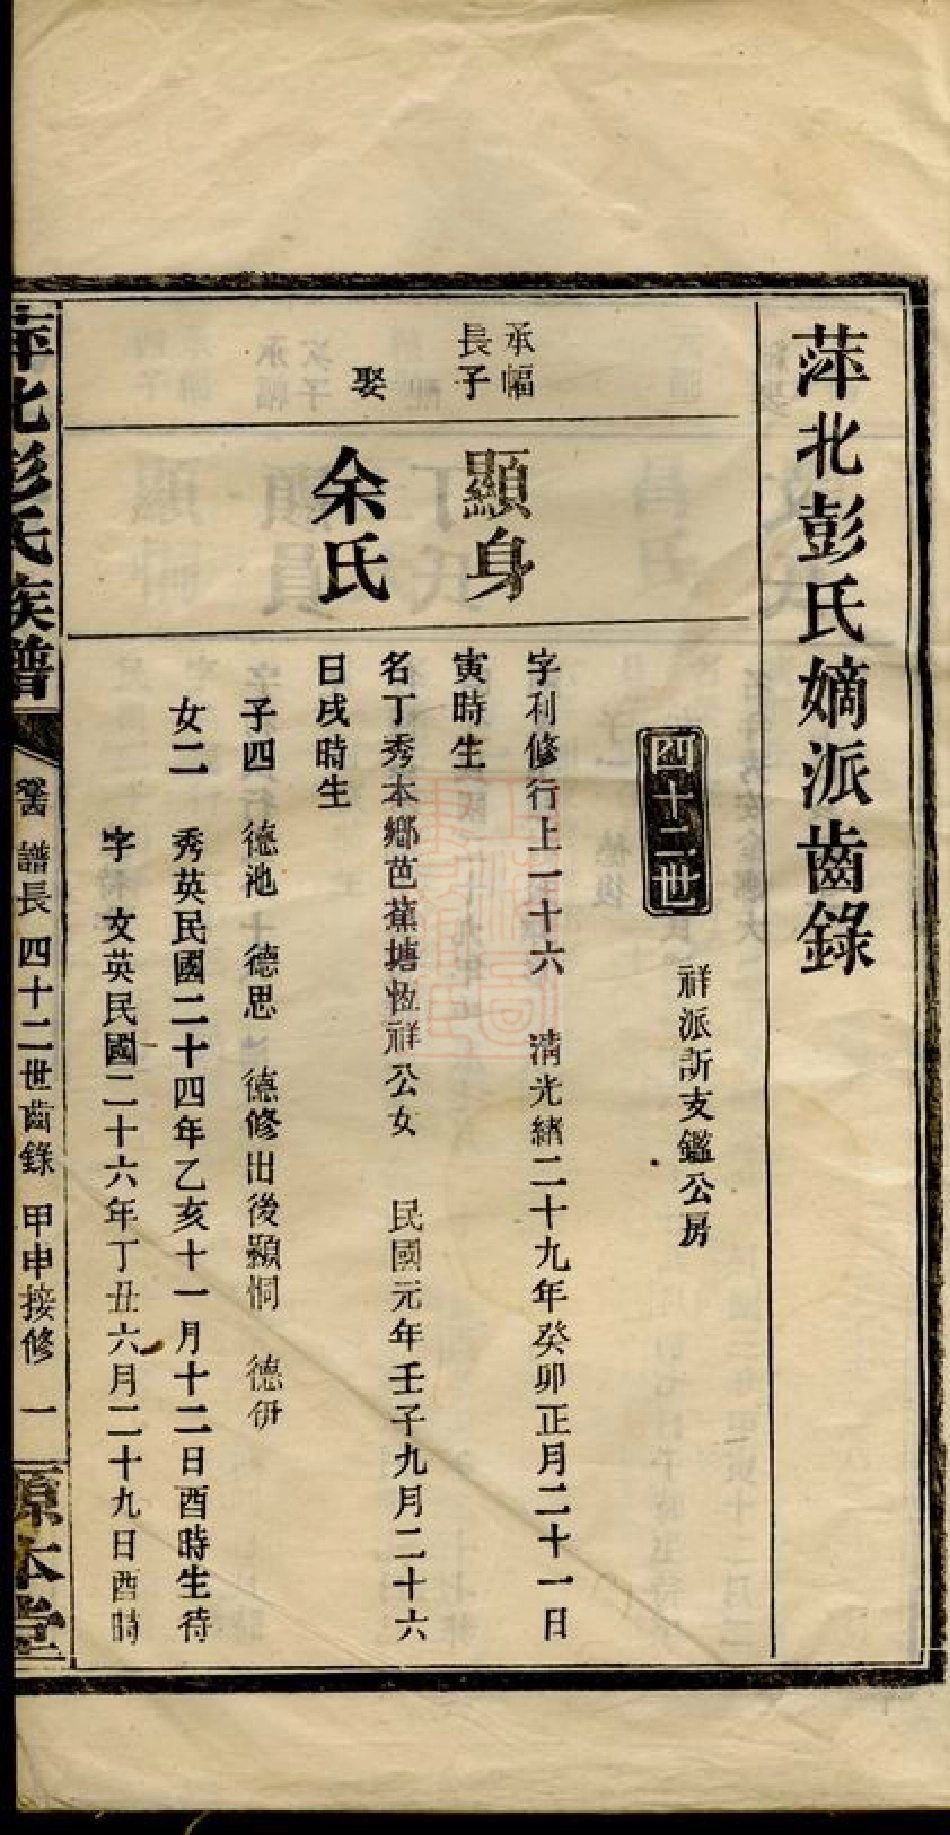 萍北彭氏嫡派齒錄
四十二世
祥派訢支鑑公房
承幅
長子
顯身
字利修行上一十六 清光緒二十九年癸卯正月二十一日
寅時生
娶
余氏
名丁秀本鄉芭蕉塘恆祥公女 民國元年壬子九月二十六
日戌時生
子四 德池 德思 德修出後顯恫 德伊
女二 秀英民國二十四年乙亥十一月十二日酉時生待
字 文英民國二十六年丁丑六月二十九日酉時
萍北彭氏族譜
譜長 四十二世齒錄 甲申接修 一
原本堂